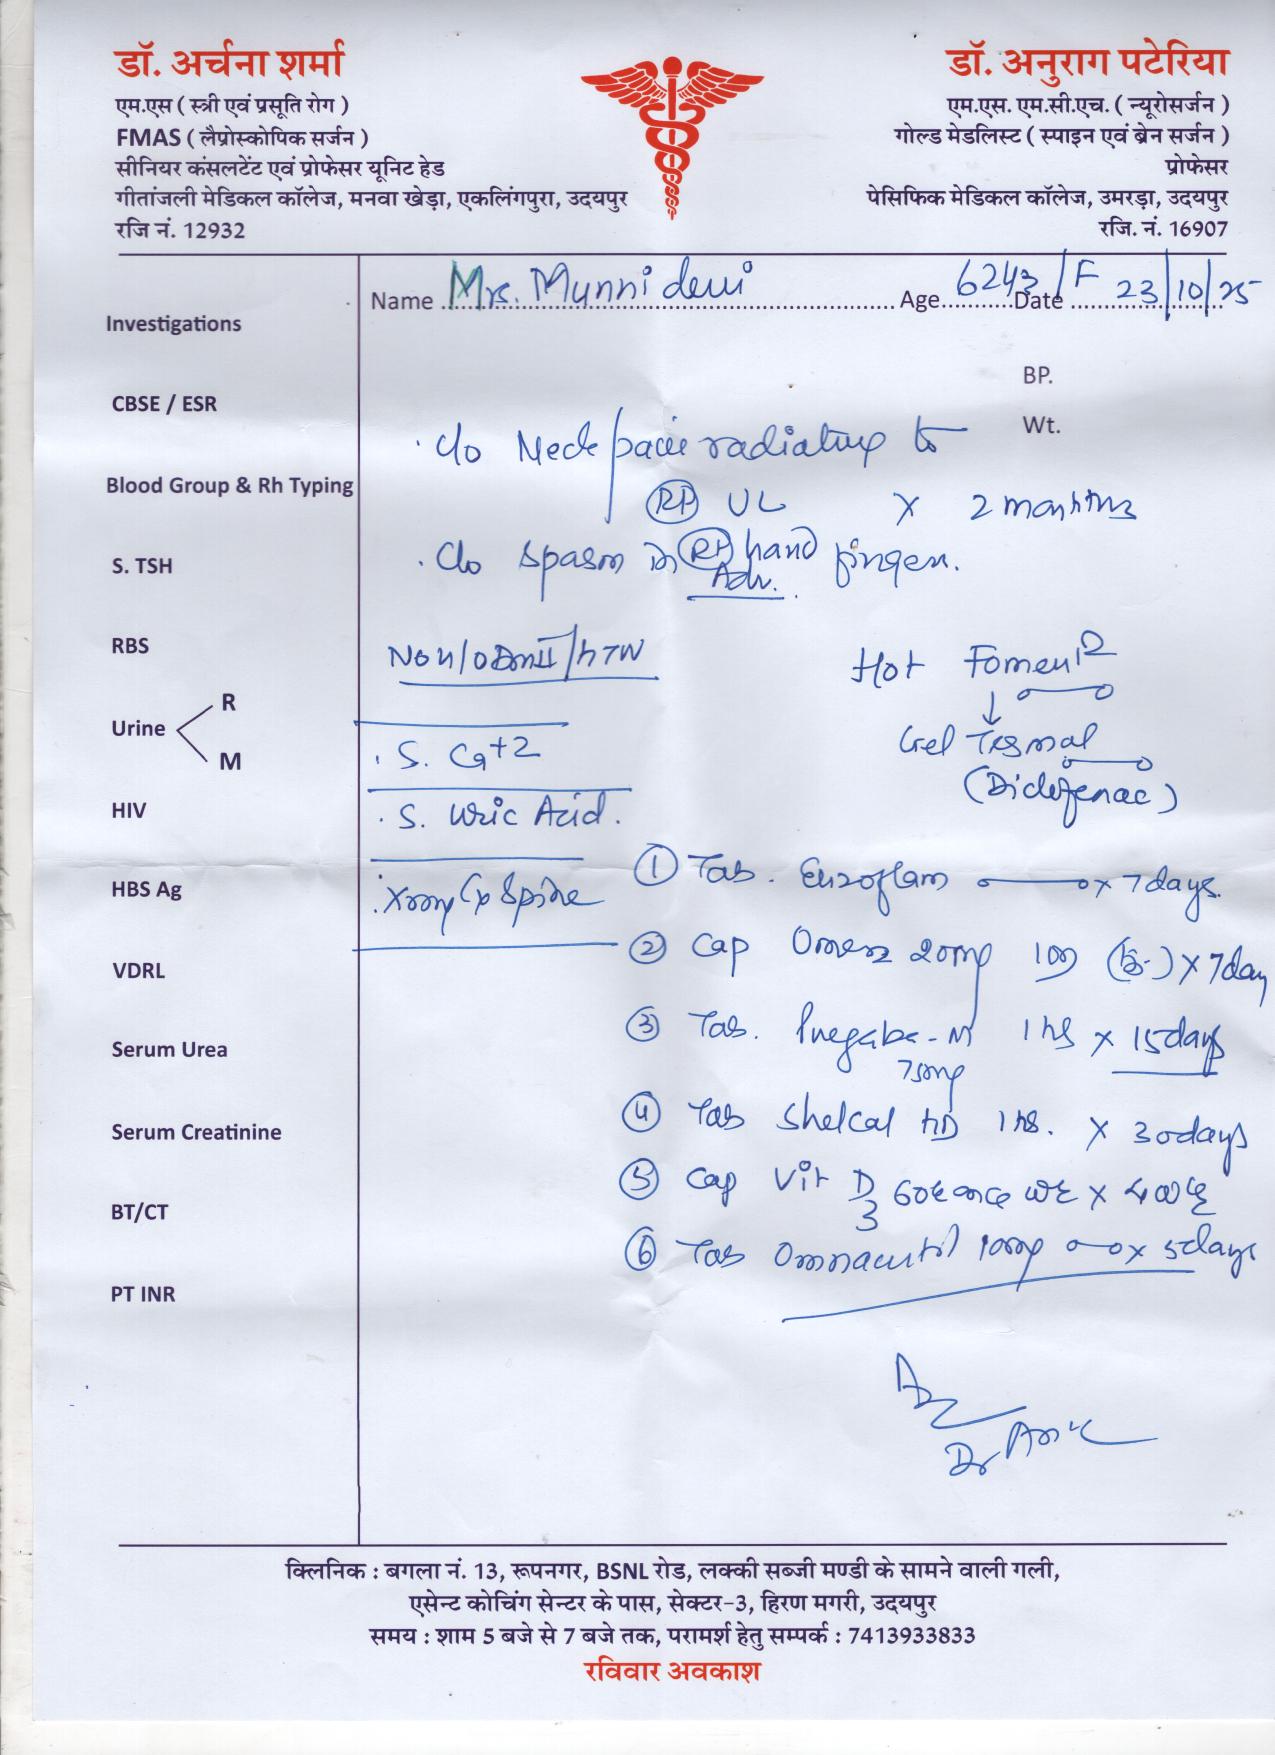 डॉ. अर्चना शर्मा
एम.एस ( स्त्री एवं प्रसूति रोग )
FMAS ( लैप्रोस्कोपिक सर्जन )
सीनियर कंसलटेंट एवं प्रोफेसर यूनिट हेड
गीतांजली मेडिकल कॉलेज, मनवा खेड़ा, एकलिंगपुरा, उदयपुर
रजि नं. 12932
डॉ. अनुराग पटेरिया
एम.एस. एम.सी.एच. ( न्यूरोसर्जन )
गोल्ड मेडलिस्ट ( स्पाइन एवं ब्रेन सर्जन )
प्रोफेसर
पेसिफिक मेडिकल कॉलेज, उमरड़ा, उदयपुर
रजि. नं. 16907
Name Mrs. Munni devi Age 62 Date 23/10/25
BP.
Wt.
Investigations
CBSE / ESR
Blood Group & Rh Typing
S. TSH
RBS
Urine R M
HIV
HBS Ag
VDRL
Serum Urea
Serum Creatinine
BT/CT
PT INR
c/o Neck pain radiating to
Rt UL x 2 months
c/o spasm in Rt hand finger.
Adv.
S. Ca+2
S. Uric Acid.
Xray Cx Spine
Hot
Gel
(Diclofenac)
① Tab. Enzoflam x 7 days.
② Cap Omez 20mg x 7 day
③ Tab. Pregaba-M 1 hs x 15 days
75mg
④ Tab Shelcal HD 1 hs. x 30 days
⑤ Cap Vit D3 60k
⑥ Tab Omnacortil 10mg x 5 days
Dr
क्लिनिक : बगला नं. 13, रूपनगर, BSNL रोड, लक्की सब्जी मण्डी के सामने वाली गली,
एसेन्ट कोचिंग सेन्टर के पास, सेक्टर-3, हिरण मगरी, उदयपुर
समय : शाम 5 बजे से 7 बजे तक, परामर्श हेतु सम्पर्क : 7413933833
रविवार अवकाश